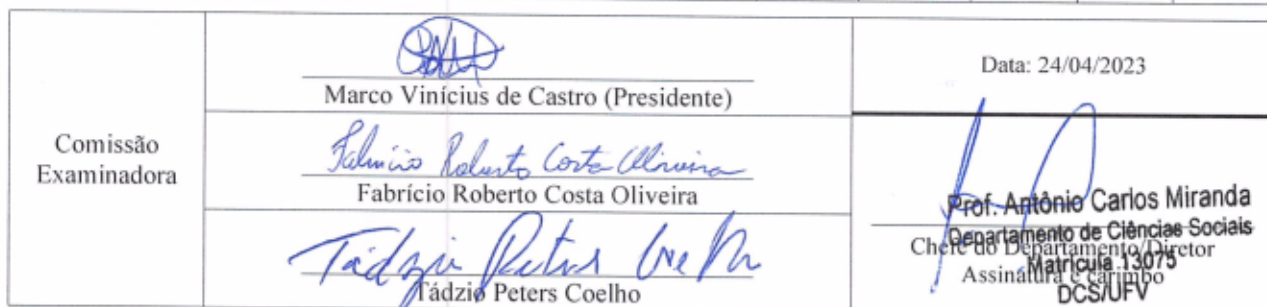 Comissão
Examinadora
Marco Vinícius de Castro (Presidente)
Fabricio Roberto Costa Oliveira
Fabrício Roberto Costa Oliveira
Tádzio Peters Coelho
Tádzio Peters Coelho
Data: 24/04/2023
Prof. Antônio Carlos Miranda
Departamento de Ciências Sociais
Chefe do Departamento/Diretor
Matrícula 13075
Assinatura e carimbo
DCS/UFV